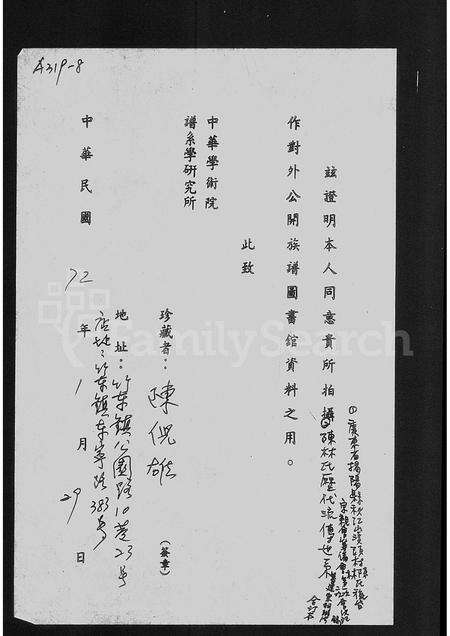 A319-8
茲證明本人同意貴所拍攝②陳林氏歷代流傳世系
①廣東省揭陽縣
作對外公開族譜圖書館資料之用。
此致
中華學術院
譜系學研究所
珍藏者：陳倪雄（簽章）
地址：竹東鎮公園路10巷23号
店址：竹東鎮東寧路383号
中華民國72年1月29日
FamilySearch